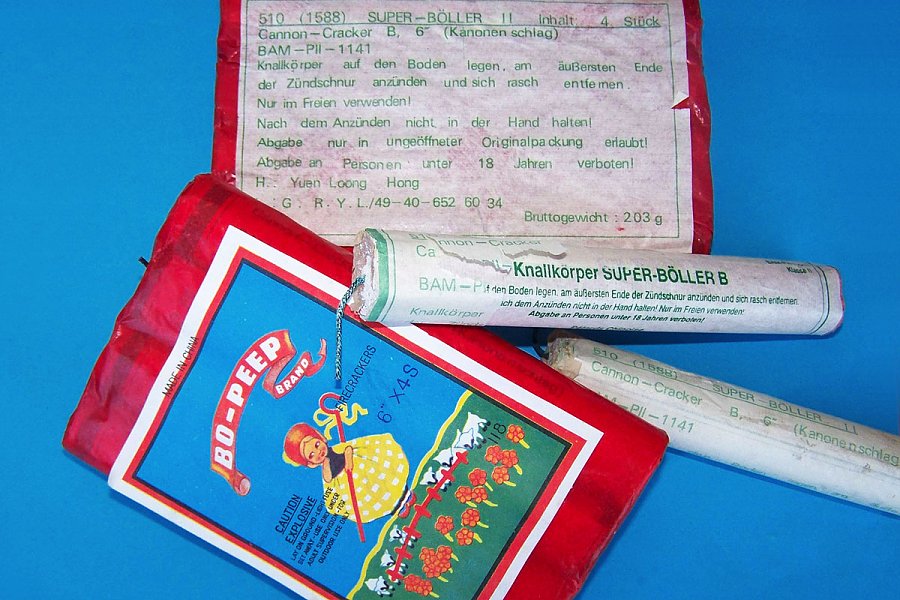 510 (1588) SUPER-BÖLLER II Inhalt: 4 Stück
Cannon-Cracker B, 6" (Kanonenschlag)
BAM-PII-1141
Knallkörper auf den Boden legen, am äußersten Ende
der Zündschnur anzünden und sich rasch entfernen.
Nur im Freien verwenden!
Nach dem Anzünden nicht in der Hand halten!
Abgabe nur in ungeöffneter Originalpackung erlaubt!
Abgabe an Personen unter 18 Jahren verboten!
H.: Yuen Loong Hong
G. R.Y.L./49-40-652 60 34
Bruttogewicht: 203 g
Cannon-Cracker
Ca
Knallkörper SUPER-BÖLLER B
BAM-P
Auf den Boden legen, am äußersten Ende der Zündschnur anzünden und sich rasch entfernen.
ich dem Anzünden nicht in der Hand halten! Nur im Freien verwenden!
Abgabe an Personen unter 18 Jahren verboten!
Knallkörper
Klasse II
510 (1588) SUPER-BÖLLER II
Cannon-Cracker B, 6" (Kanonenschlag
M-PII-1141
MADE IN CHINA
BO-PEEP
BRAND
FIRECRACKERS
6" X 4S
118
CAUTION
EXPLOSIVE
LAY ON GROUND-LIGHT FUSE
GET AWAY-USE ONLY UNDER
ADULT SUPERVISION-FOR
OUTDOOR USE ONLY